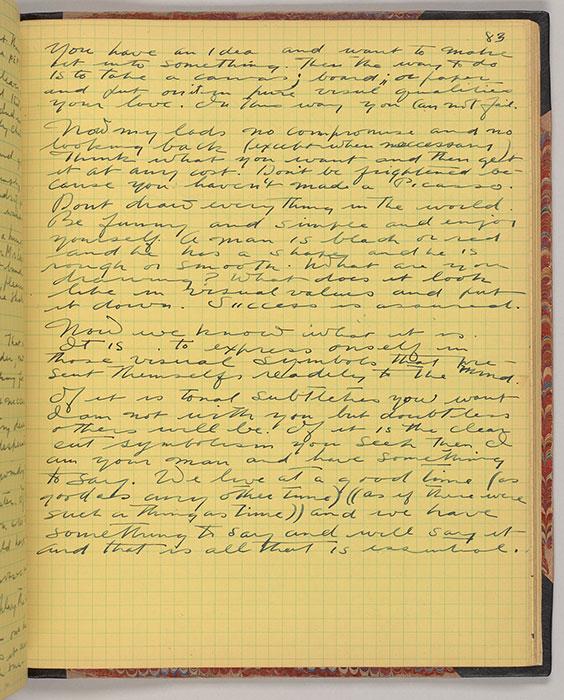 83
You have an idea and want to make
it into something. Then the way to do
is to take a canvas, board, or paper
and put on it in pure visual qualities
your love. In this way you can not fail.
Now my lads no compromise and no
looking back (except when necessary)
Think what you want and then get
it at any cost. Don't be frightened be-
cause you haven't made a Picasso.
Dont draw everything in the world.
Be funny and simple and enjoy
yourself. A man is black or red
and he has a shape and he is
rough or smooth. What are you
drawing? What does it look
like in visual values and put
it down. Success is assured.
Now we know what it is.
It is to express onself in
those visual symbols that pre-
sent themselfs readily to the mind.
If it is tonal subtleties you want
I am not with you but doubtless
others will be. If it is the clear
cut symbolism you seek then I
am your man and have something
to say. We live at a good time (as
good as any other time) ((as if there were
such a thing as time)) and we have
something to say and will say it
and that is all that is essential.